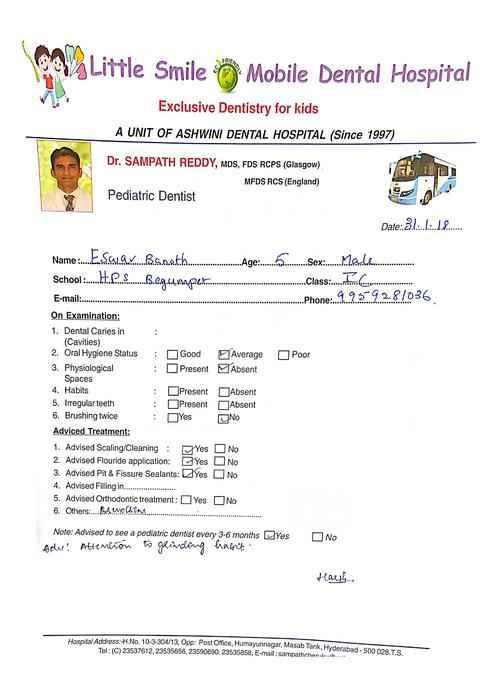 Little Smile ECO FRIENDLY Mobile Dental Hospital
Exclusive Dentistry for kids
A UNIT OF ASHWINI DENTAL HOSPITAL (Since 1997)
Dr. SAMPATH REDDY, MDS, FDS RCPS (Glasgow)
MFDS RCS (England)
Pediatric Dentist
Date: 31.1.18
Name: Eswar Banoth Age: 5 Sex: Male
School: HPS Begumpet Class: I C
E-mail: Phone: 9959281036.
On Examination:
1. Dental Caries in :
(Cavities)
2. Oral Hygiene Status : Good Average Poor
3. Physiological : Present Absent
Spaces
4. Habits : Present Absent
5. Irregular teeth : Present Absent
6. Brushing twice : Yes No
Adviced Treatment:
1. Advised Scaling/Cleaning : Yes No
2. Advised Flouride application: Yes No
3. Advised Pit & Fissure Sealants: Yes No
4. Advised Filling in
5. Advised Orthodontic treatment : Yes No
6. Others:
Note: Advised to see a pediatric dentist every 3-6 months Yes No
Adv: Attention to grinding habit.
Hospital Address:-H.No. 10-3-304/13, Opp: Post Office, Humayunnagar, Masab Tank, Hyderabad - 500 028.T.S.
Tel : (C) 23537612, 23535656, 23590690. 23535858, E-mail :